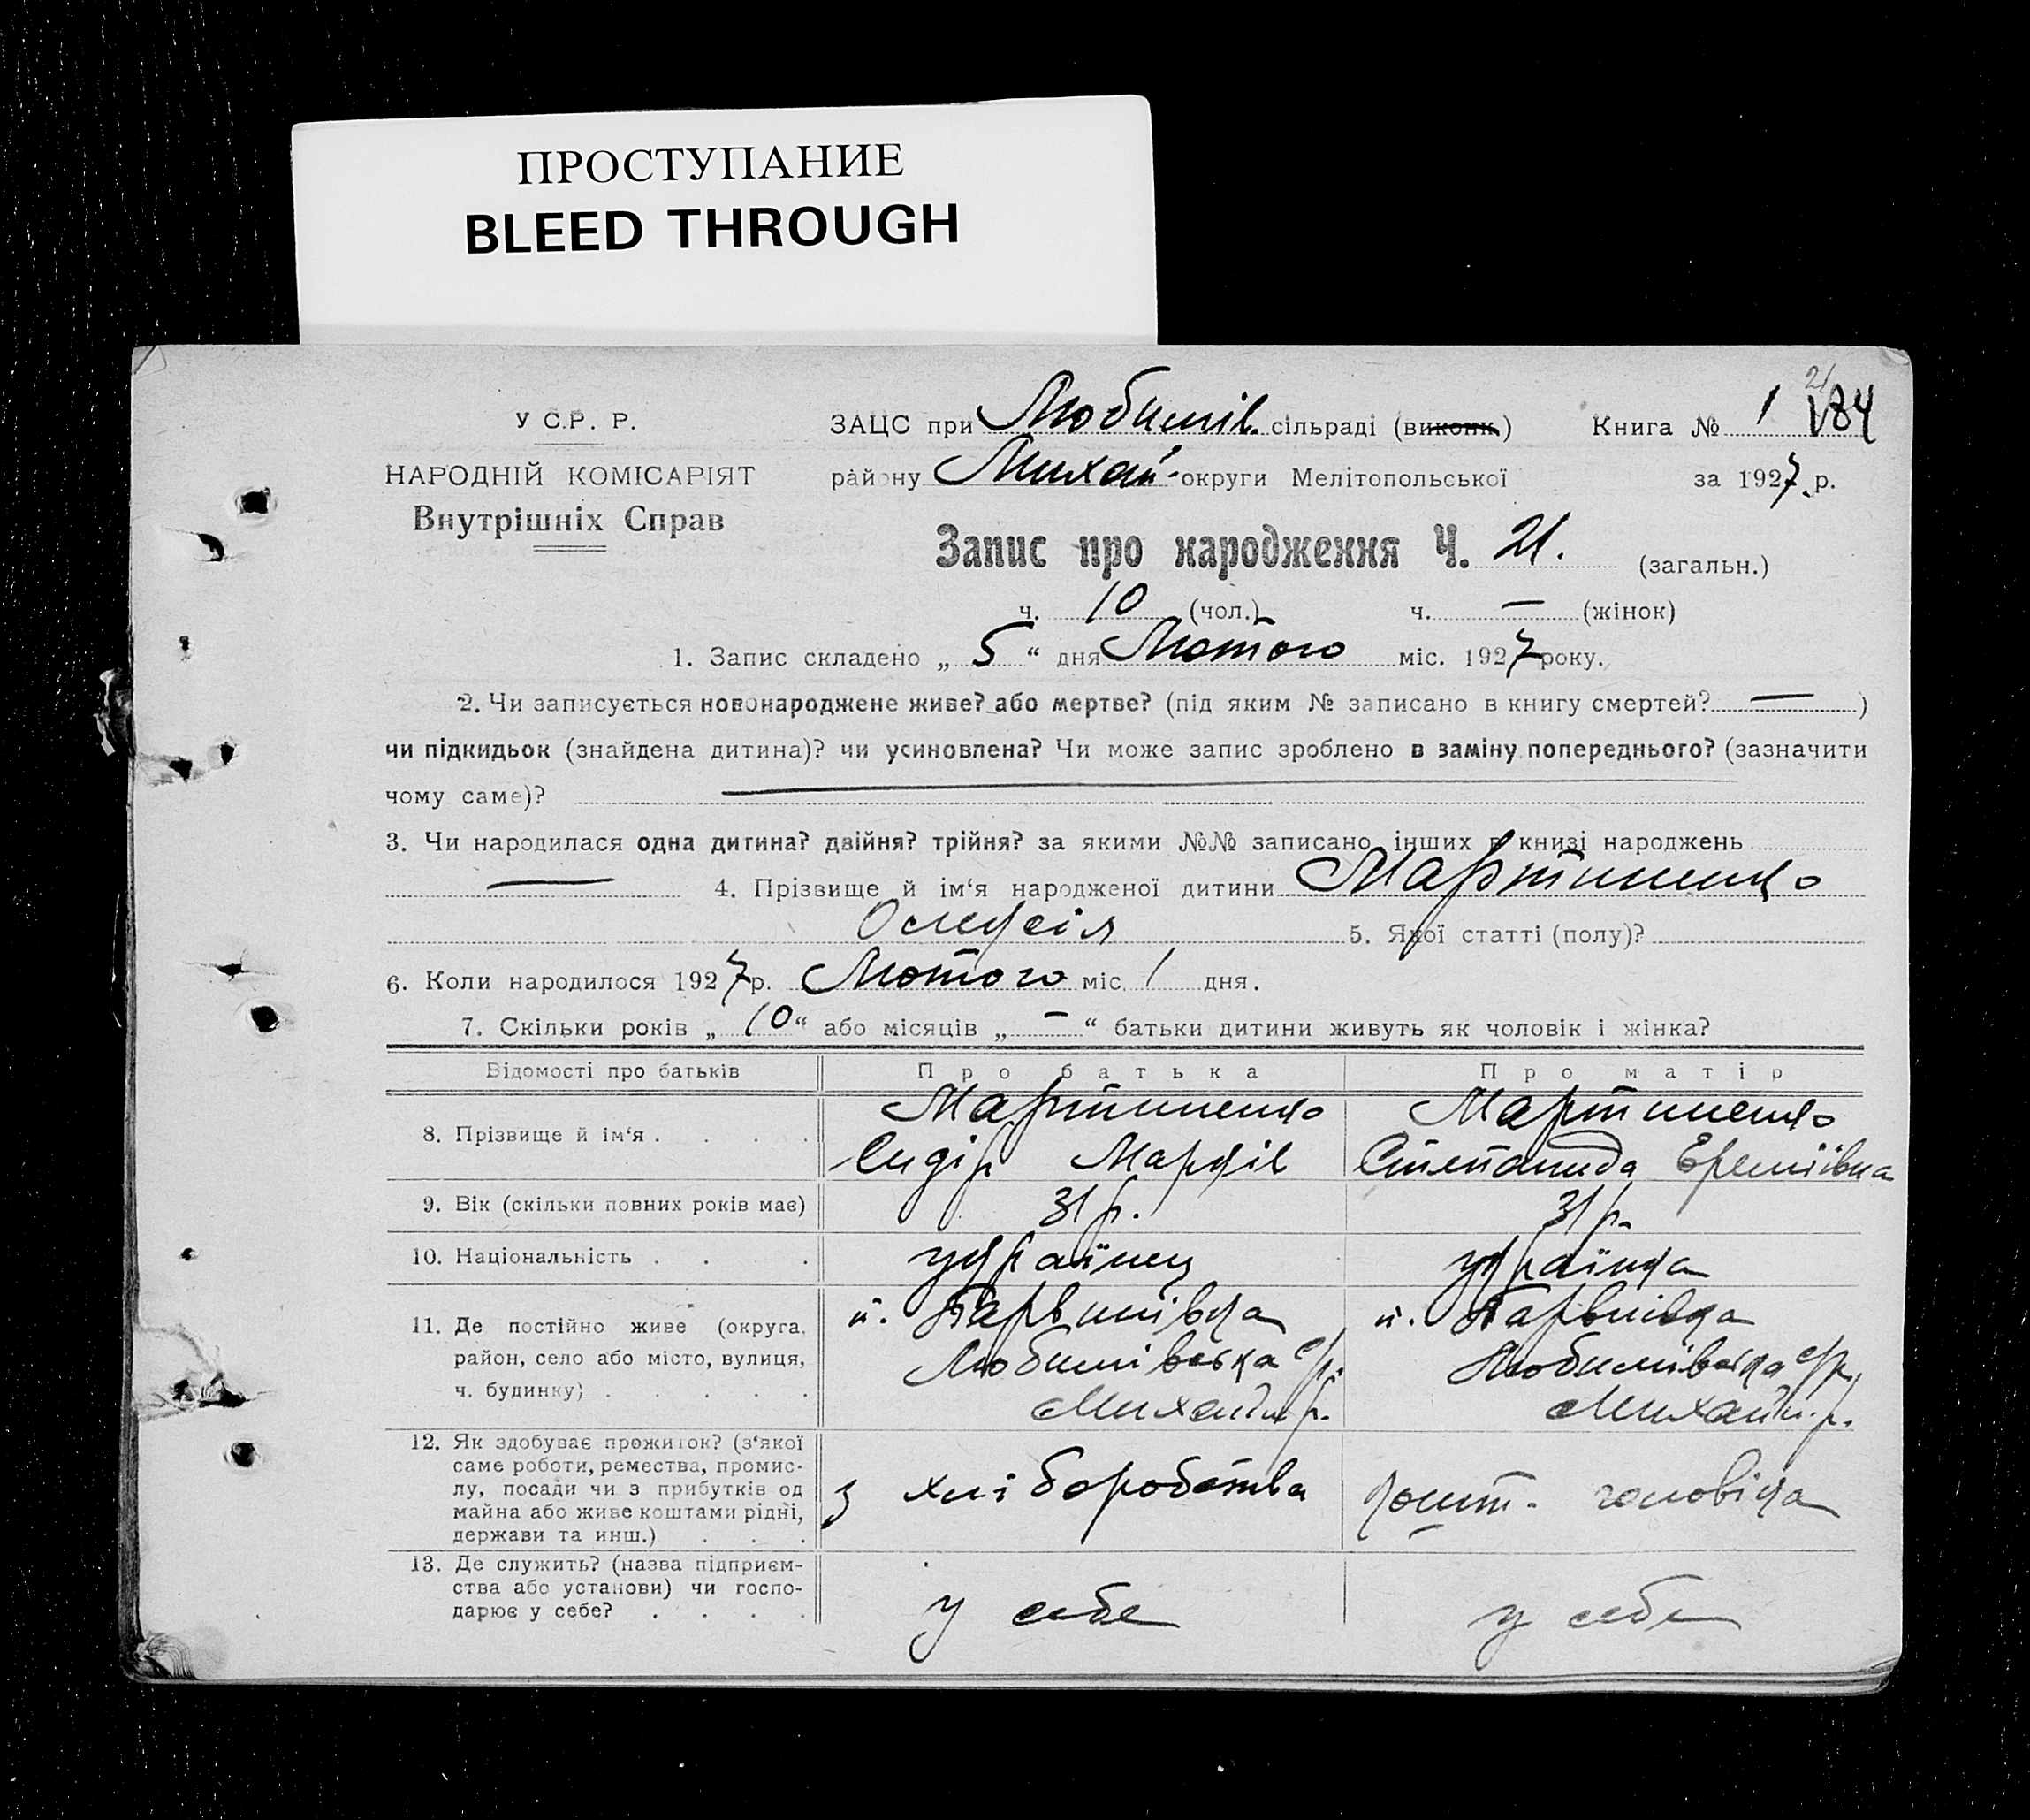 ПРОСТУПАНИЕ
BLEED THROUGH
У С.Р. Р.
ЗАЦС при Любимів. сільраді (виконк.)
Книга № 1 21 184
НАРОДНІЙ КОМІСАРІЯТ
району Михай- округи Мелітопольської
за 1927 р.
Внутрішніх Справ
Запис про народження Ч. 21. (загальн.)
ч. 10 (чол.) ч. — (жінок)
1. Запис складено „ 5 “ дня Лютого міс. 1927 року.
2. Чи записується новонароджене живе? або мертве? (під яким № записано в книгу смертей? — )
чи підкидьок (знайдена дитина)? чи усиновлена? Чи може запис зроблено в заміну попереднього? (зазначити
чому саме)? —
3. Чи народилася одна дитина? двійня? трійня? за якими №№ записано інших в книзі народжень
— 4. Прізвище й ім‘я народженої дитини Мартиненко
Олексія 5. Якої статті (полу)?
6. Коли народилося 1927 р. Лютого міс. 1 дня.
7. Скільки років „ 10 “ або місяців „ — “ батьки дитини живуть як чоловік і жінка?
Відомості про батьків
Про батька
Про матір
8. Прізвище й ім‘я . . . .
Мартиненко
Сидір Марків
Мартиненко
Степанида Єреміївна
9. Вік (скільки повних років має)
31 р.
31 р.
10. Національність . . . .
українец
українка
11. Де постійно живе (округа,
район, село або місто, вулиця,
ч. будинку) . . . . .
п. Тарвинівка
Любимівська с/р.
Михайл р.
п. Тарвнівка
Любимівська с/р.
Михайл. р.
12. Як здобуває прожиток? (з‘якої
саме роботи, ремества, промис-
лу, посади чи з прибутків од
майна або живе коштами рідні,
держави та инш.) . . .
з хліборобства
кошт. чоловіка
13. Де служить? (назва підприєм-
ства або установи) чи госпо-
дарює у себе? . . . .
у себе
у себе